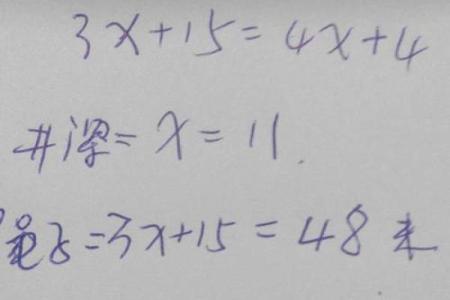 3x+15=4x+4
井深=x=11.
=3x+15=48 米